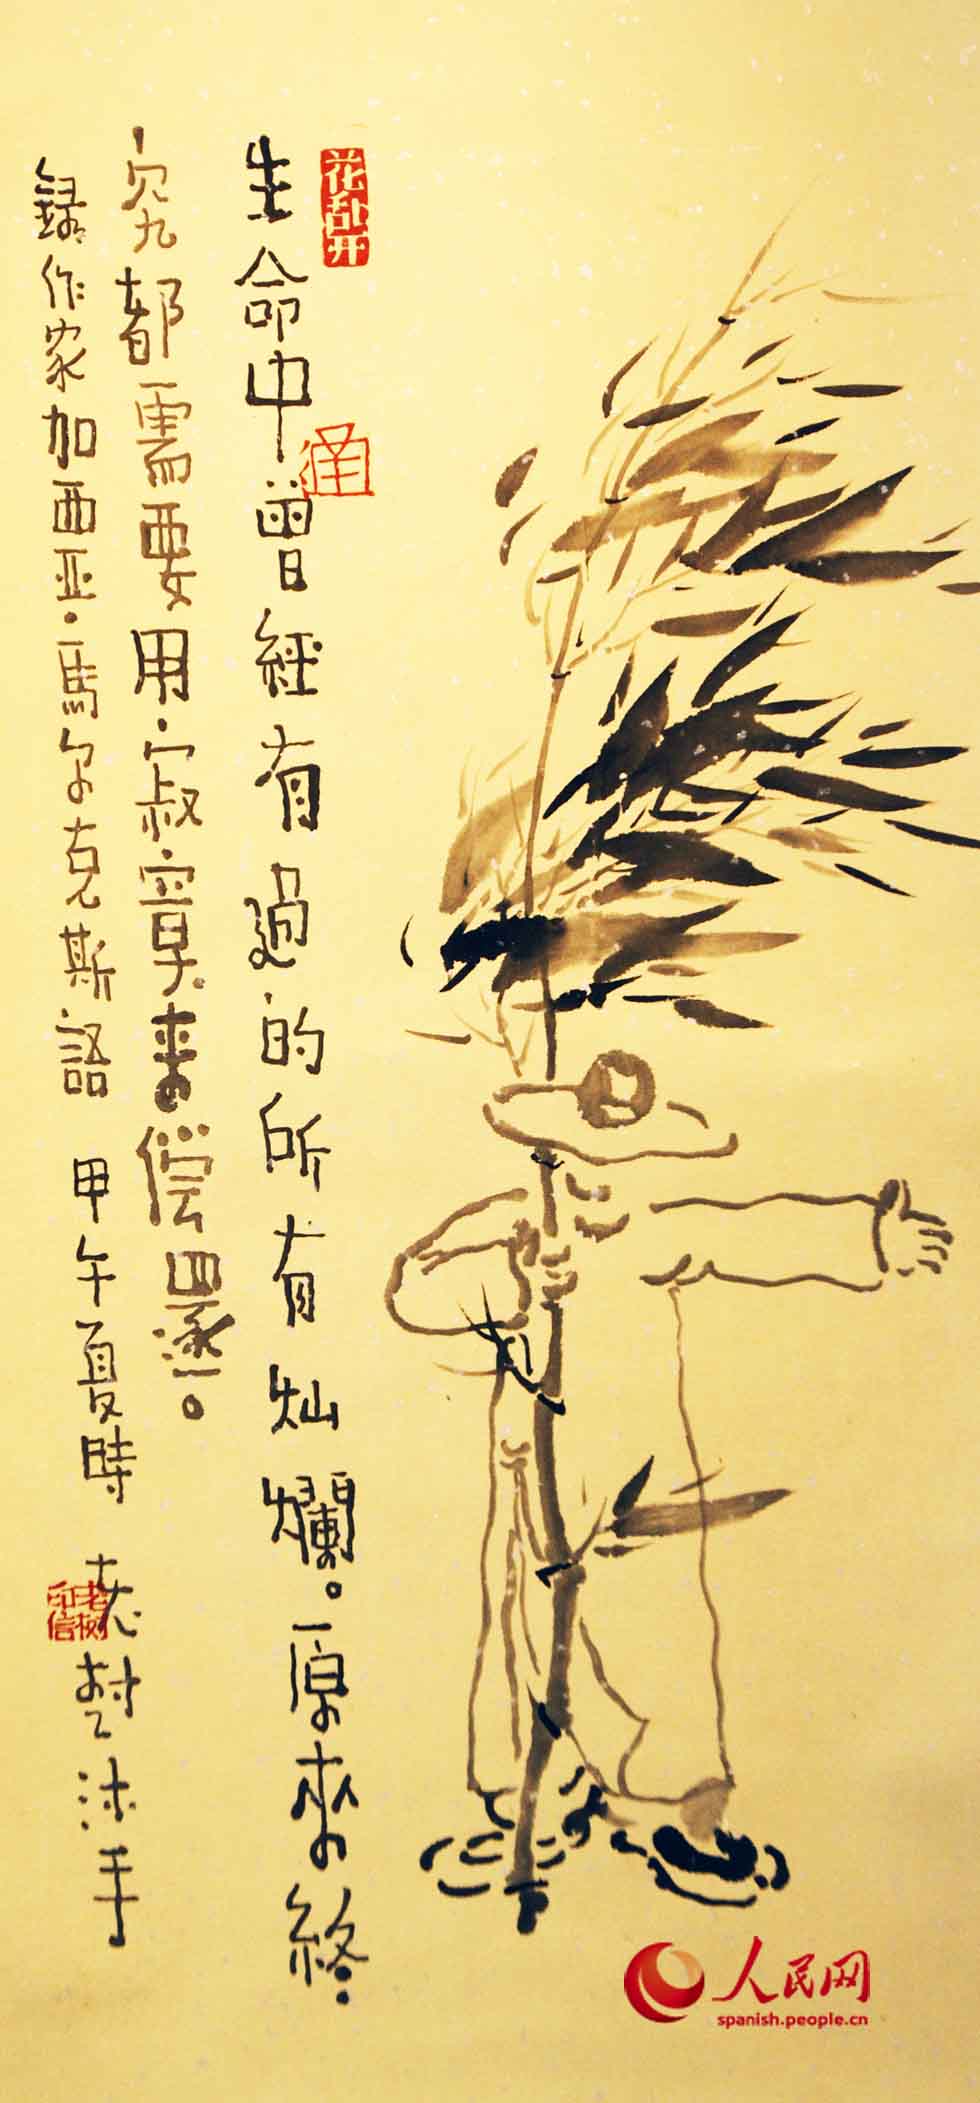 花乱开
生命中曾經有過的所有灿爛。原來終
究都需要用寂寞來偿還。
録作家加西亚·馬尔克斯語 甲午夏時 老樹沐手
老树
印信
人民网
spanish.people.cn